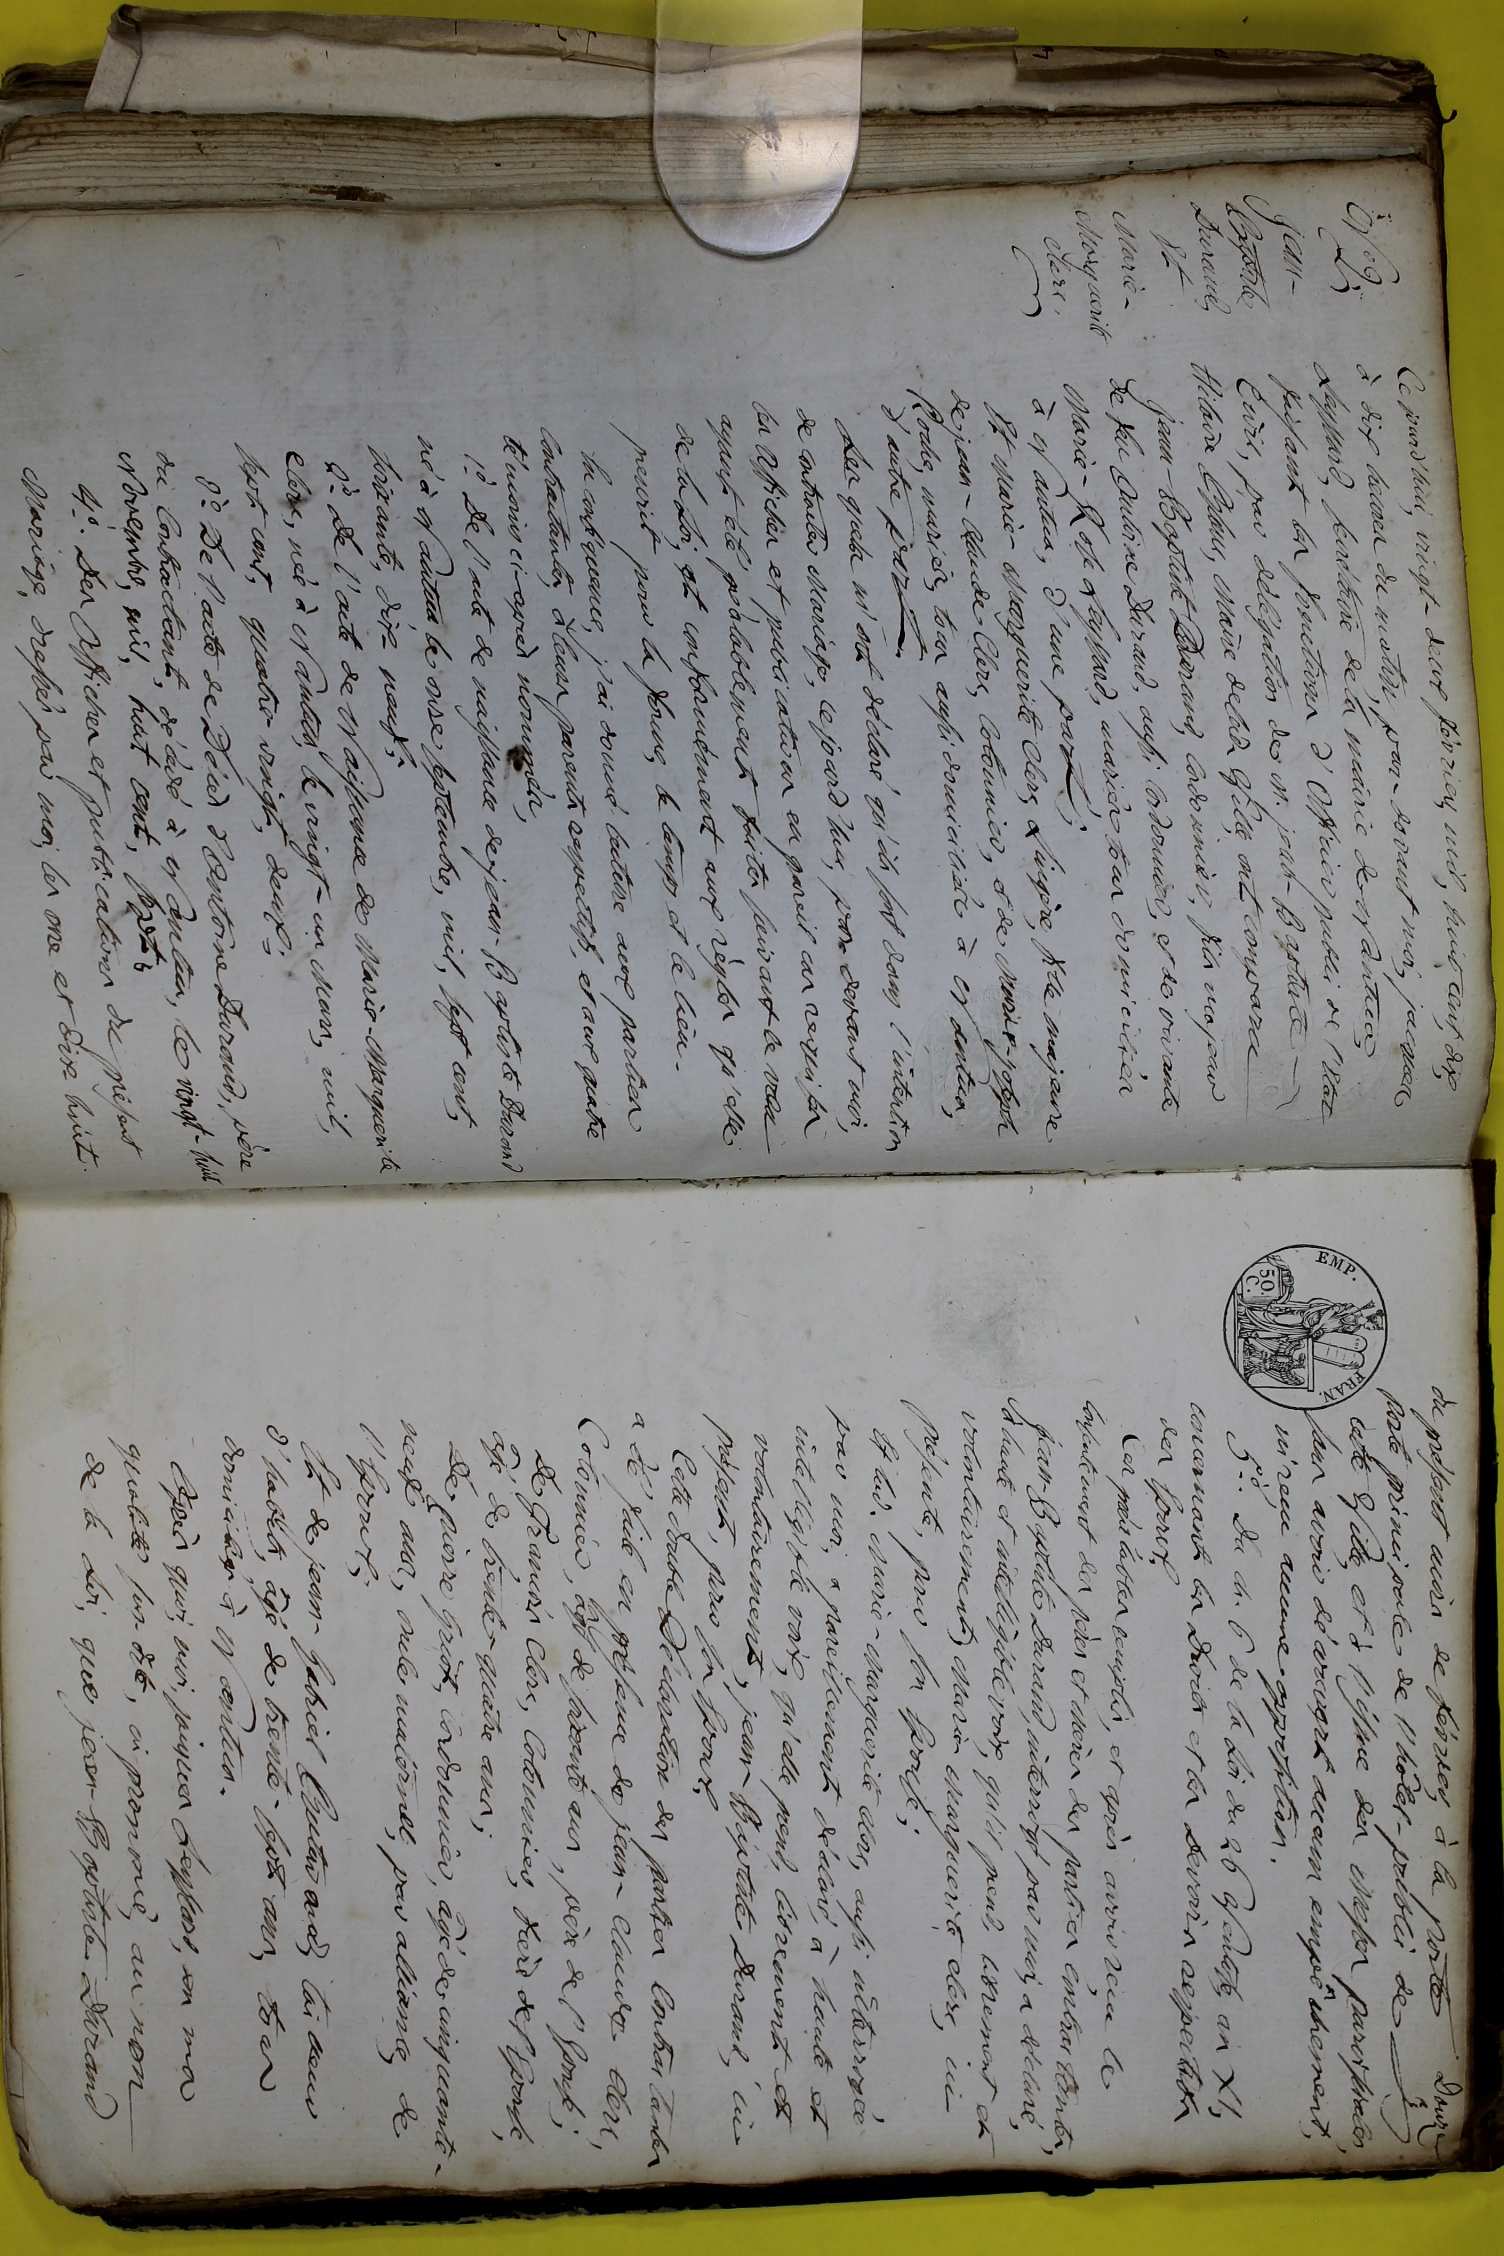 N.º 2,
Jean-
Baptiste
Durand,
Et
Marie-
Marguerite
Clerc.
Ce jourd'hui, vingt-deux février, mil, huit cent, dix,
à dix heures du matin, par-devant moi, jacques
Leyssard, secrétaire de la mairie de Nantua,
faisant les fonctions d'Officier public de l'état
Civil, par délégation de M. jean-Baptiste-
Hilaire Maire de lad. Ville, ont comparu
jean-Baptiste Durand, cordonnier, fils majeur
de feu Antoine Durand, aussi cordonnier, et de vivante
Marie-Rose Leyssard, mariés, tous domiciliés
à Nantua, d'une part;
Et Marie-Marguerite Clerc, Lingère, fille majeure
de jean-Claude Clerc, Cotonnier, et de Marie-joseph
Roche, mariés, tous aussi domiciliés à Nantua,
d'autre part.
Lesquels m'ont déclaré qu'ils sont dans l'intention
de contracter Mariage, ce jourd'hui, par-devant moi,
les affiches et publications en pareil cas requises
ayant été préalablement faites suivant le vœu
de la Loi, et conformément aux règles qu'elle
prescrit pour la forme, le temps et le lieu.
En conséquence, j'ai donné lecture aux parties
Contractantes, à leurs parents respectifs, et aux quatre
témoins ci-après nommés,
1.º De l'acte de naissance de jean-Baptiste Durand
né à Nantua le onze septembre, mil, sept cent,
soixante, dix neuf;
2.º De l'acte de Naissance de Marie-Marguerite
Clerc, née à Nantua, le vingt-un Mars, mil,
sept cent, quatre vingt, deux;
3.º De l'acte de Décès d'Antoine Durand, père
du Contractant, décédé à Nantua, le vingt-huit
Novembre, mil, huit cent, sept;
4.º Des Affiches et publications du présent
Mariage, dressés par moi, les onze et dix huit
Douze
du présent mois de février, à la porte
Porte principale de l'hôtel-public de
cette Ville, et à l'issue des Messes paroissiales,
sans avoir découvert aucun empêchement,
ni reçu aucune opposition.
5.º Du ch. 6 de la Loi du 26 Ventôse, an XI,
concernant les Droits et les Devoirs respectifs
des Epoux.
Ces préalables remplis, et après avoir reçu le
consentement des pères et mères des parties contractantes,
jean-Baptiste Durand, interrogé par moi, a déclaré,
à haute et intelligible voix, qu'il prend, librement et
volontairement, Marie Marguerite Clerc, ici
présente, pour son Epouse;
Et lad. Marie-Marguerite Clerc, aussi interrogée
par moi, a pareillement déclaré, à haute et
intelligible voix, qu'elle prend, librement et
volontairement, jean-Baptiste Durand, ici
présent, pour son Epoux.
Cette double Déclaration des parties Contractantes
a été faite en présence de jean-Claude Clerc,
Cotonnier, âgé de soixante ans, père de l'Epouse;
De François Clerc, Cotonnier, frère de l'Epouse,
âgé de trente-quatre ans;
De pierre cordonnier, âgé de cinquante-
neuf ans, oncle maternel, par alliance, de
l'Epoux;
Et de jean-Gabriel tailleur
d'habits, âgé de trente-sept ans, tous
domiciliés à Nantua.
Après quoi, moi jacques Leyssard, en ma
qualité susdite, ai prononcé, au nom
de la Loi, que jean-Baptiste Durand
EMP. FRAN.
50. C.